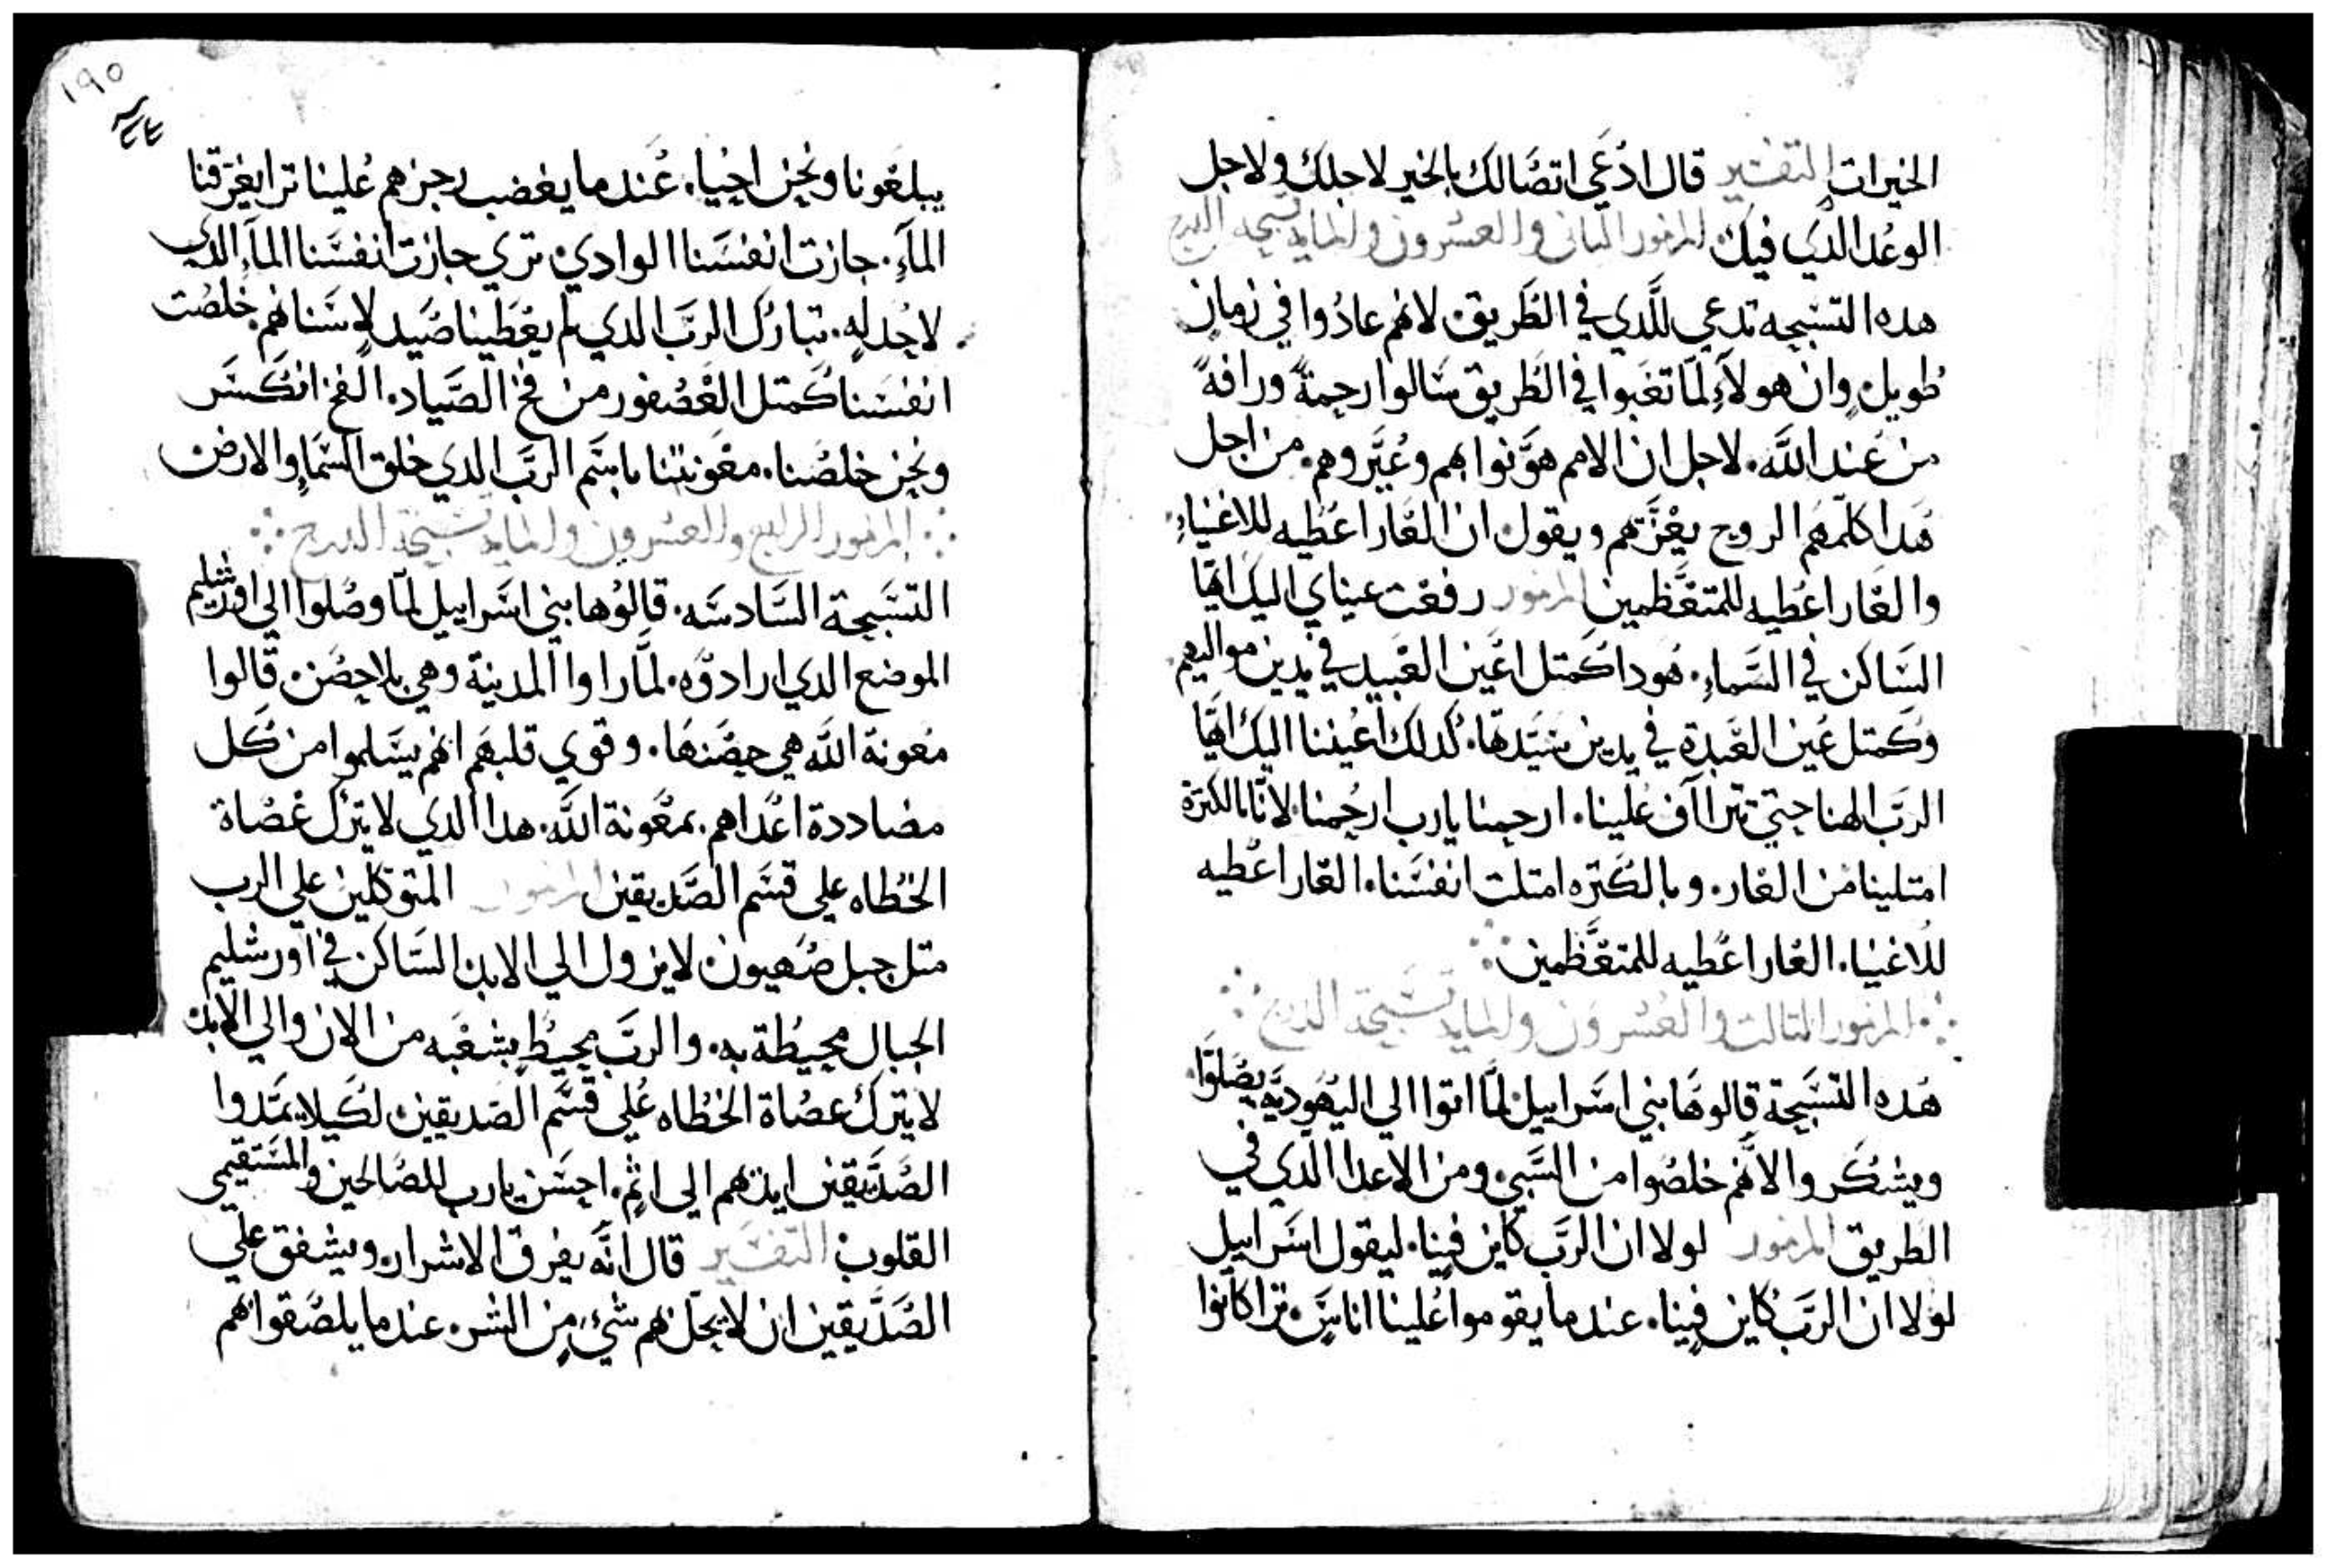 الخيرات التفسير قال ادعي اتصالك بالخير لاجلك ولاجل
الوعد الدي فيك المزمور التاني والعشرون والمايه تسبحه الدرج
هده التسبحه تدعي للدي في الطريق لانهم عادوا في زمان
طويل وان هولاء لما تعبوا في الطريق سالوا رحمة ورافة
من عند الله. لاجل ان الامم هونوا بهم وعيروهم. من اجل
هدا كلمهم الروح يعزيهم ويقول ان العار اعطيه للاغنياء
والعار اعطيه للمتعظمين المزمور رفعت عيناي اليك ايها
الساكن في السماء. هودا كمتل اعين العبيد في يدين مواليهم
وكمتل عين العبدة في يدين سيدتها. كدلك اعيننا اليك ايها
الرب الهنا حتي تتراآف علينا. ارحمنا يارب ارحمنا لاننا بالكترة
امتلينا من العار. وبالكتره امتلت انفسنا. العار اعطيه
للاغنياء. العار اعطيه للمتعظمين
المزمور التالت والعشرون والمايه تسبحة الدرج
هده التسبحة قالوها بني اسراييل لما اتوا الي اليهوديه يصلوا
ويشكروا لانهم خلصوا من السبي. ومن الاعدا الدي في
الطريق المزمور لولا ان الرب كاين فينا. ليقول اسراييل
لولا ان الرب كاين فينا. عند ما يقوموا علينا اناس. ترا كانوا
١٩٥
يبلعونا ونحن احيا. عند ما يغضب رجزهم علينا ترا يغرقنا
الماء. جازت انفسنا الوادي تري جازت انفسنا الماء الدي
لا حد له. تبارك الرب الدي لم يعطينا صيد لاسنانهم. خلصت
انفسنا كمتل العصفور من فخ الصياد. الفخ انكسر
ونحن خلصنا. معونتنا باسم الرب الدي خلق السماء والارض
المزمور الرابع والعشرون والمايه تسبحة الدرج
التسبحة السادسه. قالوها بني اسراييل لما وصلوا الي اورشليم
الموضع الدي ارادوه. لما راوا المدينة وهي بلا حصن قالوا
معونة الله هي حصنها. وقوي قلبهم انهم يسلموا من كل
مضاددة اعداهم. بمعونة الله. هدا الدي لا يترك عصاة
الخطاه علي قسم الصديقين المزمور المتوكلين علي الرب
متل جبل صهيون لا يزول الي الابد الساكن في اورشليم
الجبال محيطة به. والرب محيط بشعبه من الان والي الابد
لا يترك عصاة الخطاه علي قسم الصديقين لكيلا يمدوا
الصديقين ايديهم الي اثم. احسن يارب للصالحين والمستقيمي
القلوب التفسير قال انه يفرق الاشرار. ويشفق علي
الصديقين ان لا يحل بهم شيء من الشر. عند ما يلصقوا بهم